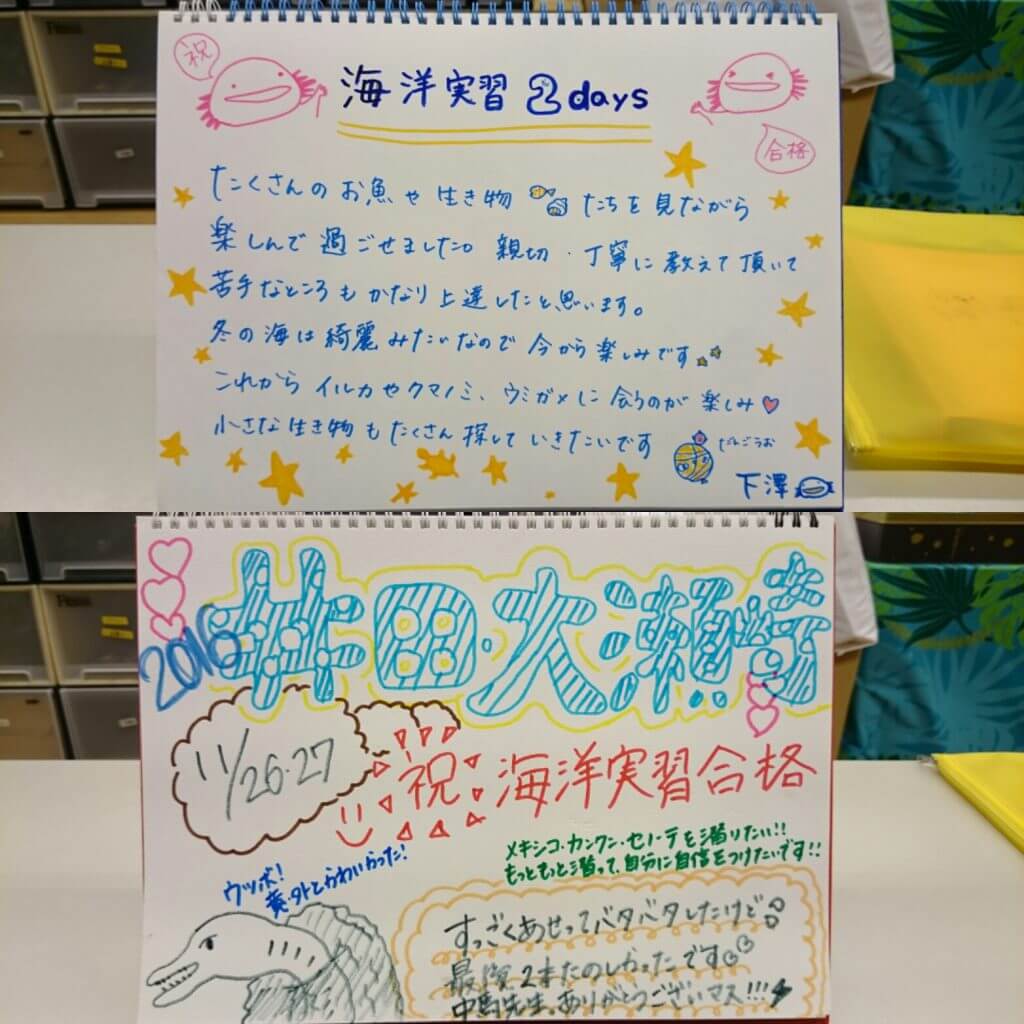 祝
海洋実習 2days
合格
たくさんのお魚や生き物 たちを見ながら
楽しんで過ごせました。親切・丁寧に教えて頂いて
苦手なところもかなり上達したと思います。
冬の海は綺麗みたいなので今から楽しみです
これからイルカやクマノミ、ウミガメに会うのが楽しみ♡
小さな生き物もたくさん探していきたいです
だんごうお
下澤
2016
井田・大瀬崎
11/26・27
祝 海洋実習合格
メキシコ・カンクン・セノーテを潜りたい!!
もっともっと潜って、自分に自信をつけたいです!!
ウツボ!
意外とかわいかった!
すっごくあせってバタバタしたけど
最後 たのしかったです
先生、ありがとうございマス!!!